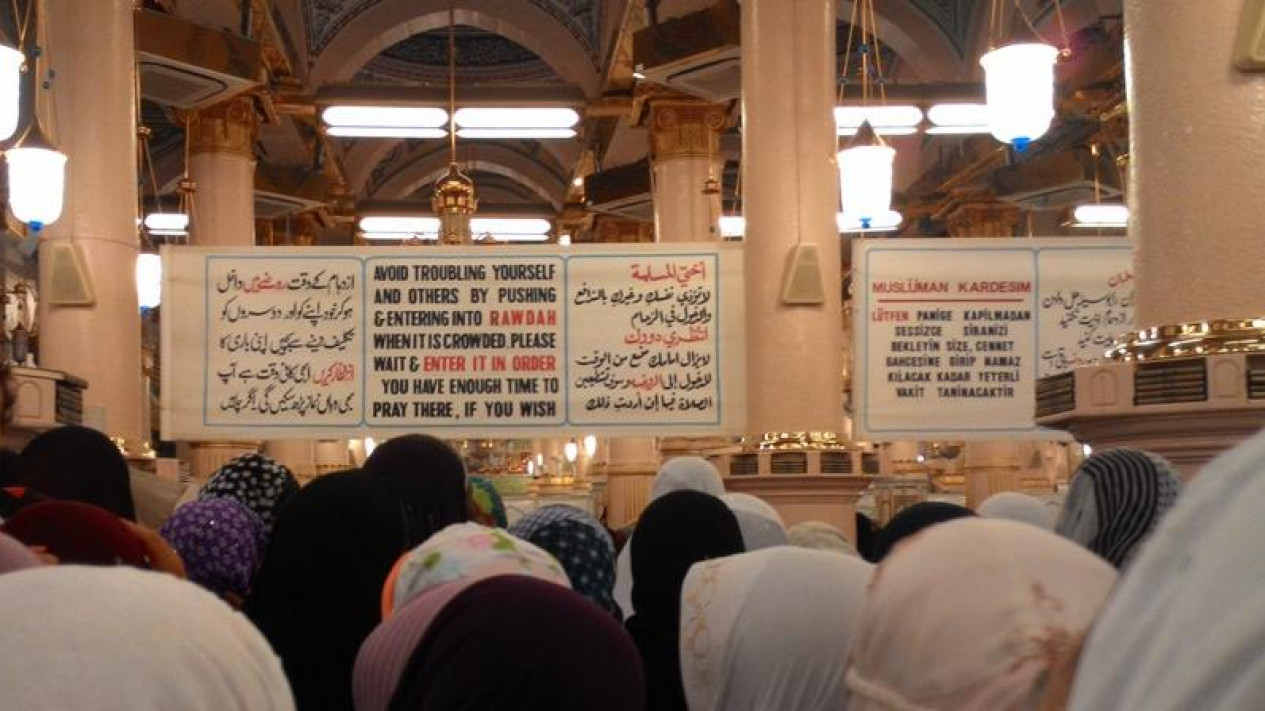 ازدہام کے وقت روضے میں داخل
ہو کر خود اپنے کو اور دوسروں کو
تکلیف دینے سے بچیں اپنی باری کا
انتظار کریں ابھی کافی وقت ہے آپ
بھی وہاں نماز پڑھ سکیں گی اگر چاہیں
AVOID TROUBLING YOURSELF
AND OTHERS BY PUSHING
& ENTERING INTO RAWDAH
WHEN IT IS CROWDED. PLEASE
WAIT & ENTER IT IN ORDER
YOU HAVE ENOUGH TIME TO
PRAY THERE, IF YOU WISH
أختي المسلمة
لا تؤذي نفسك وغيرك بالتدافع
والدخول في الزحام
انتظري دورك
لايزال أمامك متسع من الوقت
لدخول إلى الروضة وسوف تستطيعين
الصلاة فيها إن أردت ذلك
MUSLÜMAN KARDESIM
LÜTFEN PANIGE KAPILMADAN
SESSIZCE SIRANIZI
BEKLEYIN SIZE, CENNET
BAHCESINE GIRIP NAMAZ
KILACAK KADAR YETERLI
VAKIT TANINACAKTIR